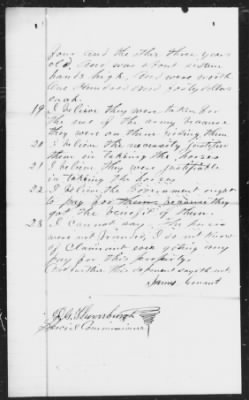 four and the other three years
old, and was about sixteen
hands high, and were worth
one Hundred and forty dollars
each.
19 I believe they were taken for
the use of the army because
they were on them riding them
20 I believe the necessity justified
them in taking the horses
21 I believe they were justifiable
in taking the horses
22 I believe the Government ought
to pay for them because they
got the benefit of them.
23 I cannot say. The horses
were not I do not know
of Claimant ever getting any
pay for this property.
And further this deponent sayeth not.
James
Special Commissioner